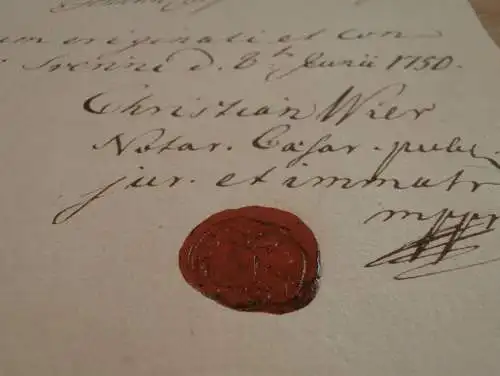 originali et con
d. 8t. Junii 1750.
Christian Wier
Notar. Cæsar. publ.
jur. et immatr
mppr